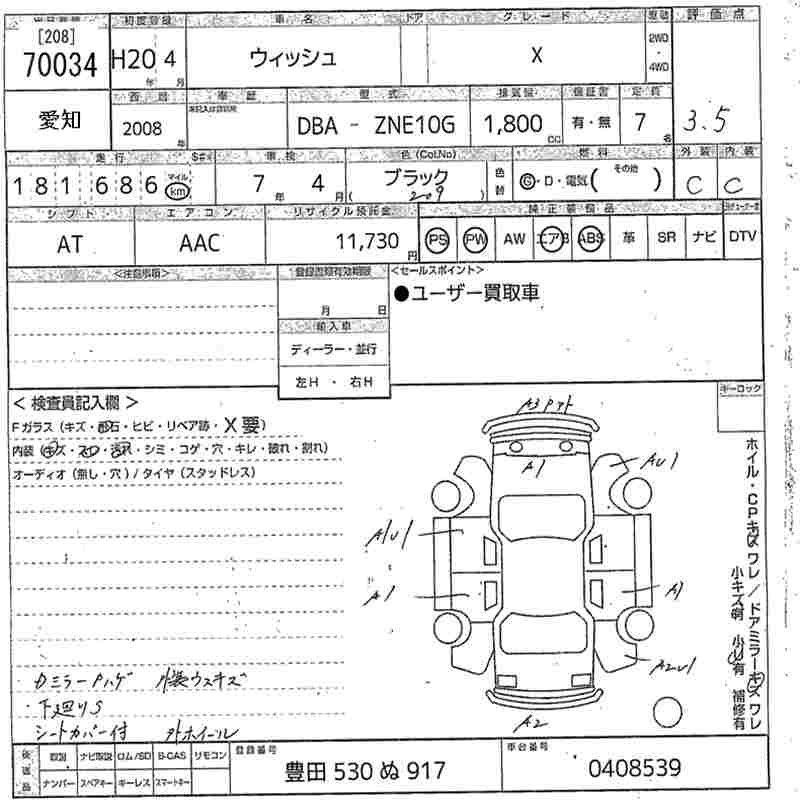 [208]
70034
初度登録
車名
ドア
グレード
評価点
H20年 4月
ウィッシュ
X
2WD・4WD
愛知
車歴
型式
排気量
保証書
定員
2008年
DBA - ZNE10G
1,800cc
有・無
7名
3.5
走行
車検
色(Col.No)
燃料
その他
外装
内装
181686 マイル km
7年 4月
ブラック
(209)
色替
G・D・電気( )
C
C
シフト
エアコン
リサイクル預託金
純正装備品
AT
AAC
11,730円
PS
PW
AW
エアB
ABS
革
SR
ナビ
DTV
<注意事項>
登録書類有効期限
<セールスポイント>
月 日
●ユーザー買取車
輸入車
ディーラー・並行
左H ・ 右H
キーロック
<検査員記入欄>
Fガラス(キズ・飛石・ヒビ・リペア跡・X要)
内装(キズ・スレ・汚れ・シミ・コゲ・穴・キレ・破れ・割れ)
オーディオ(無し・穴)/タイヤ(スタッドレス)
A1
AU1
A1
A1
A2
ホイル・CPキズ ワレ/ドアミラーキズ ワレ
小キズ有 小U有 補修有
・下廻りS
シートカバー付
取説
ナビ取説
ロム/SD
B-CAS
リモコン
ナンバー
スペアキー
キーレス
スマートキー
登録番号
豊田 530 ぬ 917
車台番号
0408539